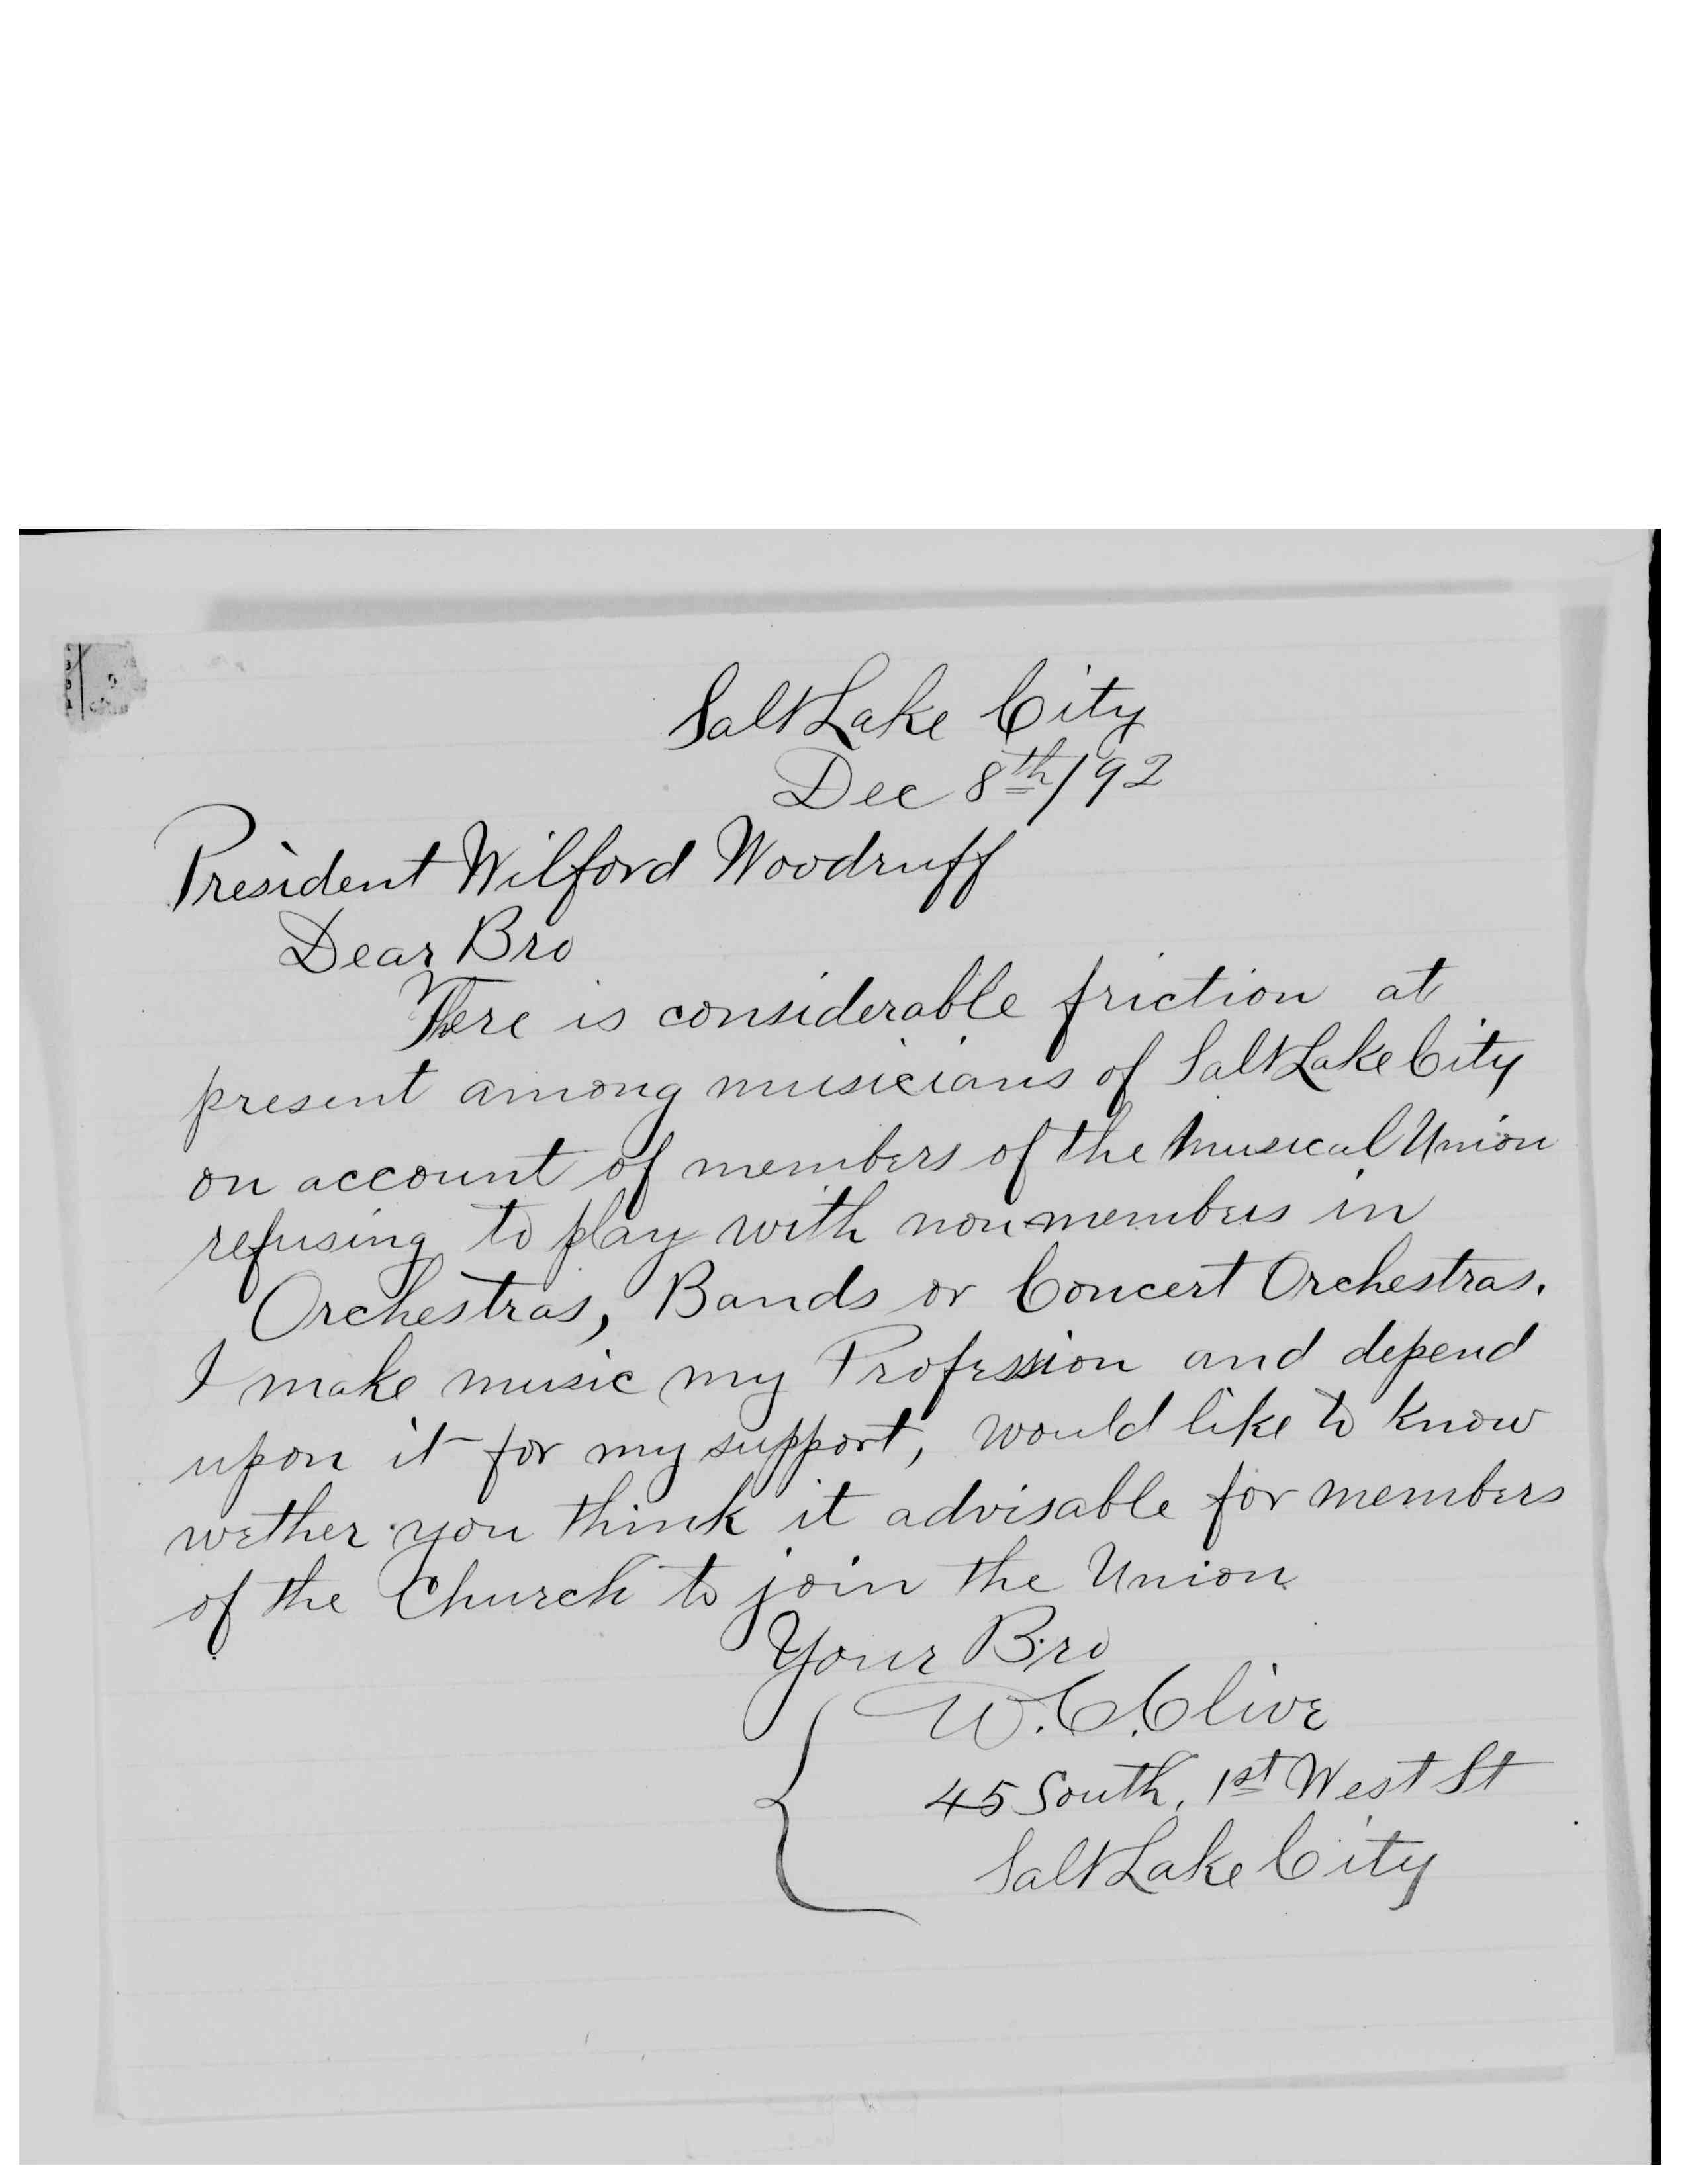 Salt Lake City
Dec 8th/92
President Wilford Woodruff
Dear Bro
There is considerable friction at
present among musicians of Salt Lake City
on account of members of the Musical Union
refusing to play with non-members in
Orchestras, Bands or Concert Orchestras.
I make music my Profession and depend
upon it for my support, would like to know
wether you think it advisable for members
of the Church to join the Union.
Your Bro
W. C. Clive
45 South, 1st West St
Salt Lake City